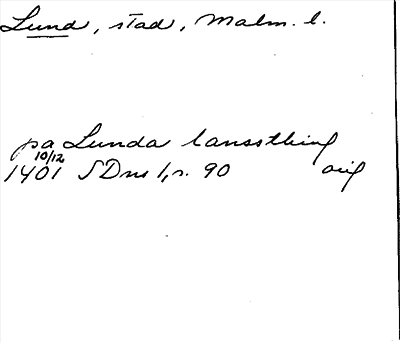 Lund, stad, Malm. l.
pa Lunda lanssthing
10/12
1401 SDns 1, s. 90 orig